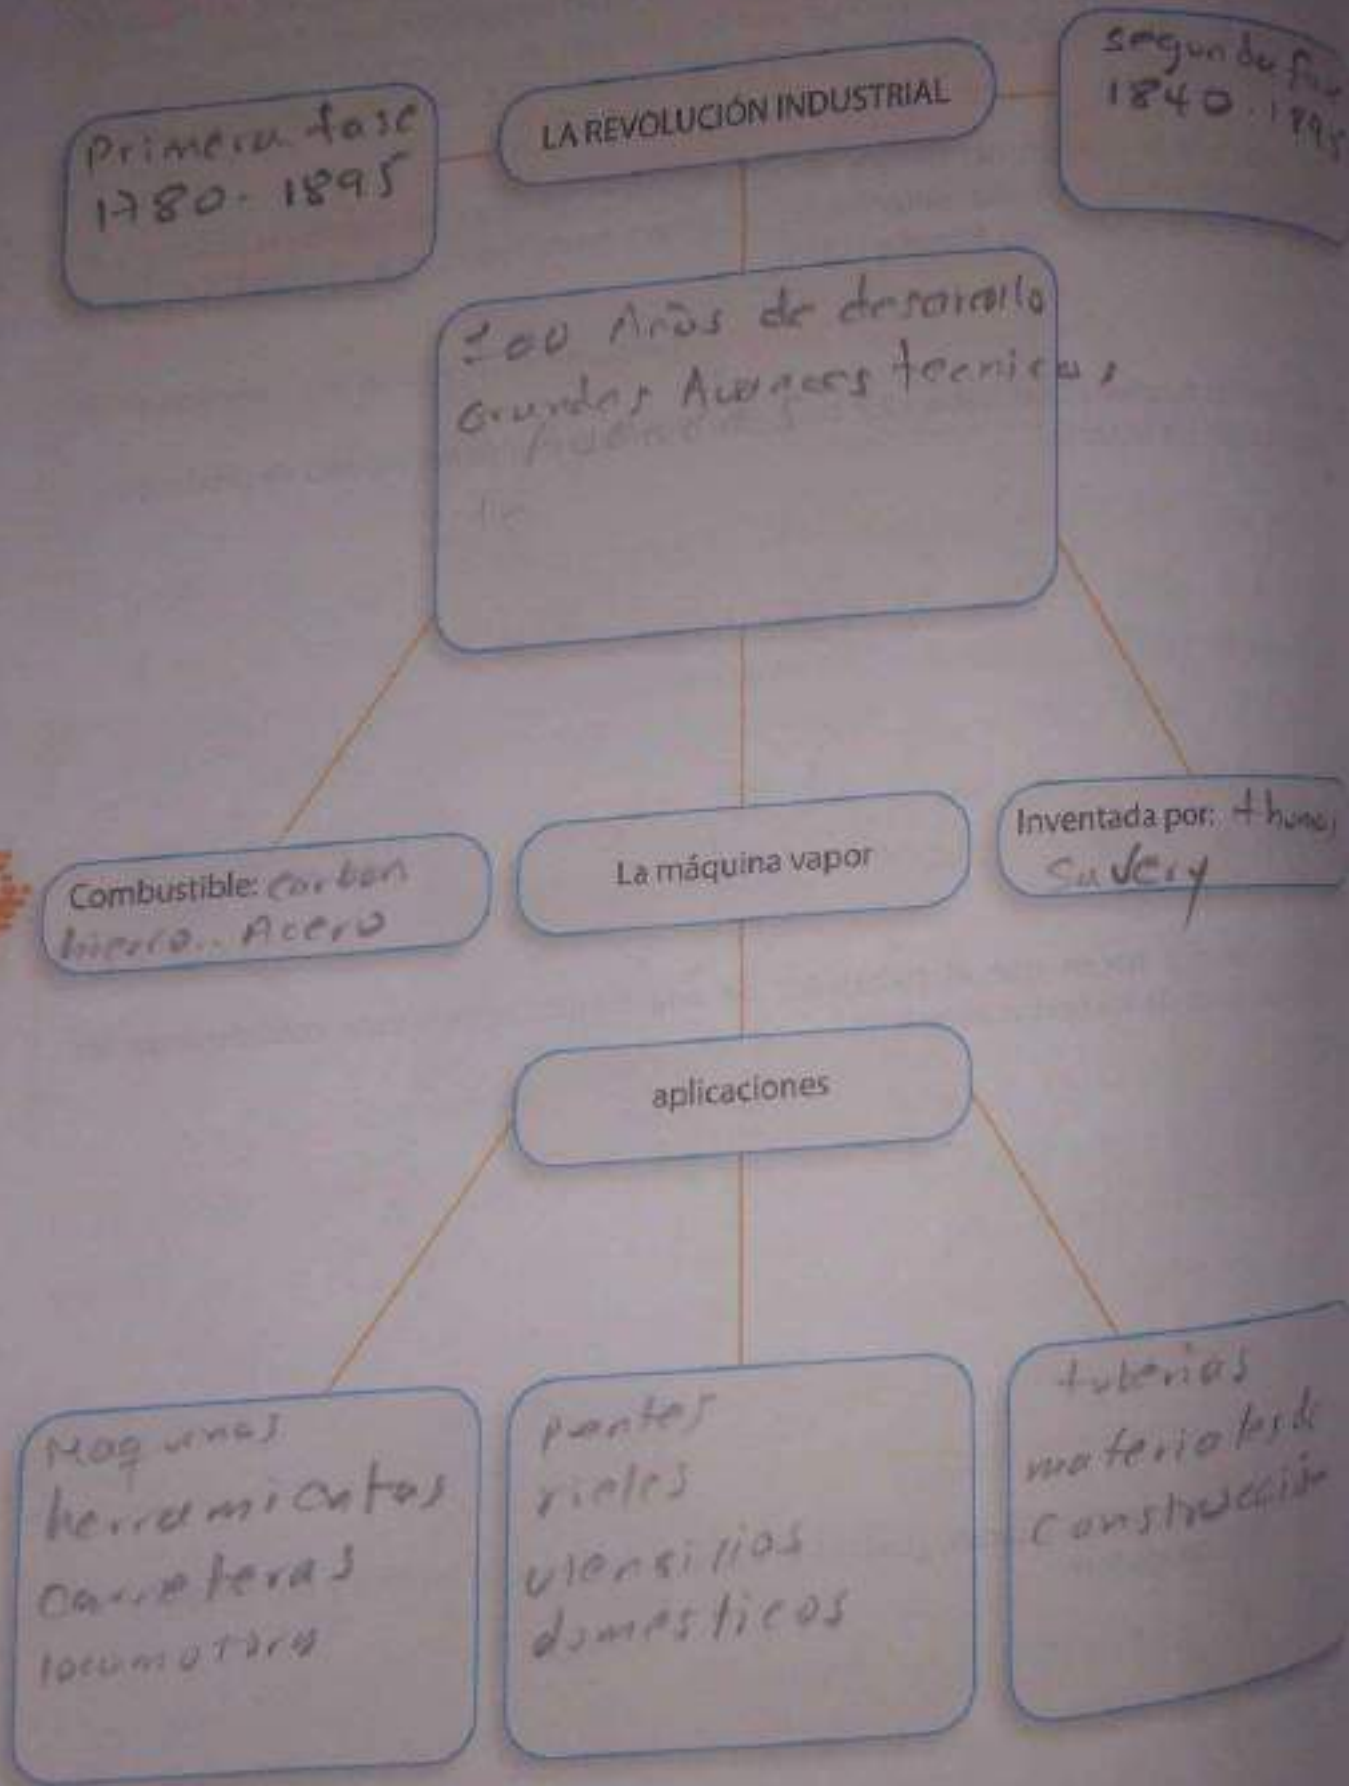 Primera fase
1780 - 1895
LA REVOLUCIÓN INDUSTRIAL
segunda
1840 - 1895
100 Años de desarrollo
Grandes Avances tecnicos
Combustible: carbon
hierro.. Acero
La máquina vapor
Inventada por: thomas
Savery
aplicaciones
Maquinas
herramientas
carreteras
locomotora
puentes
rieles
utensilios
domésticos
tuberias
materiales de
Construcción